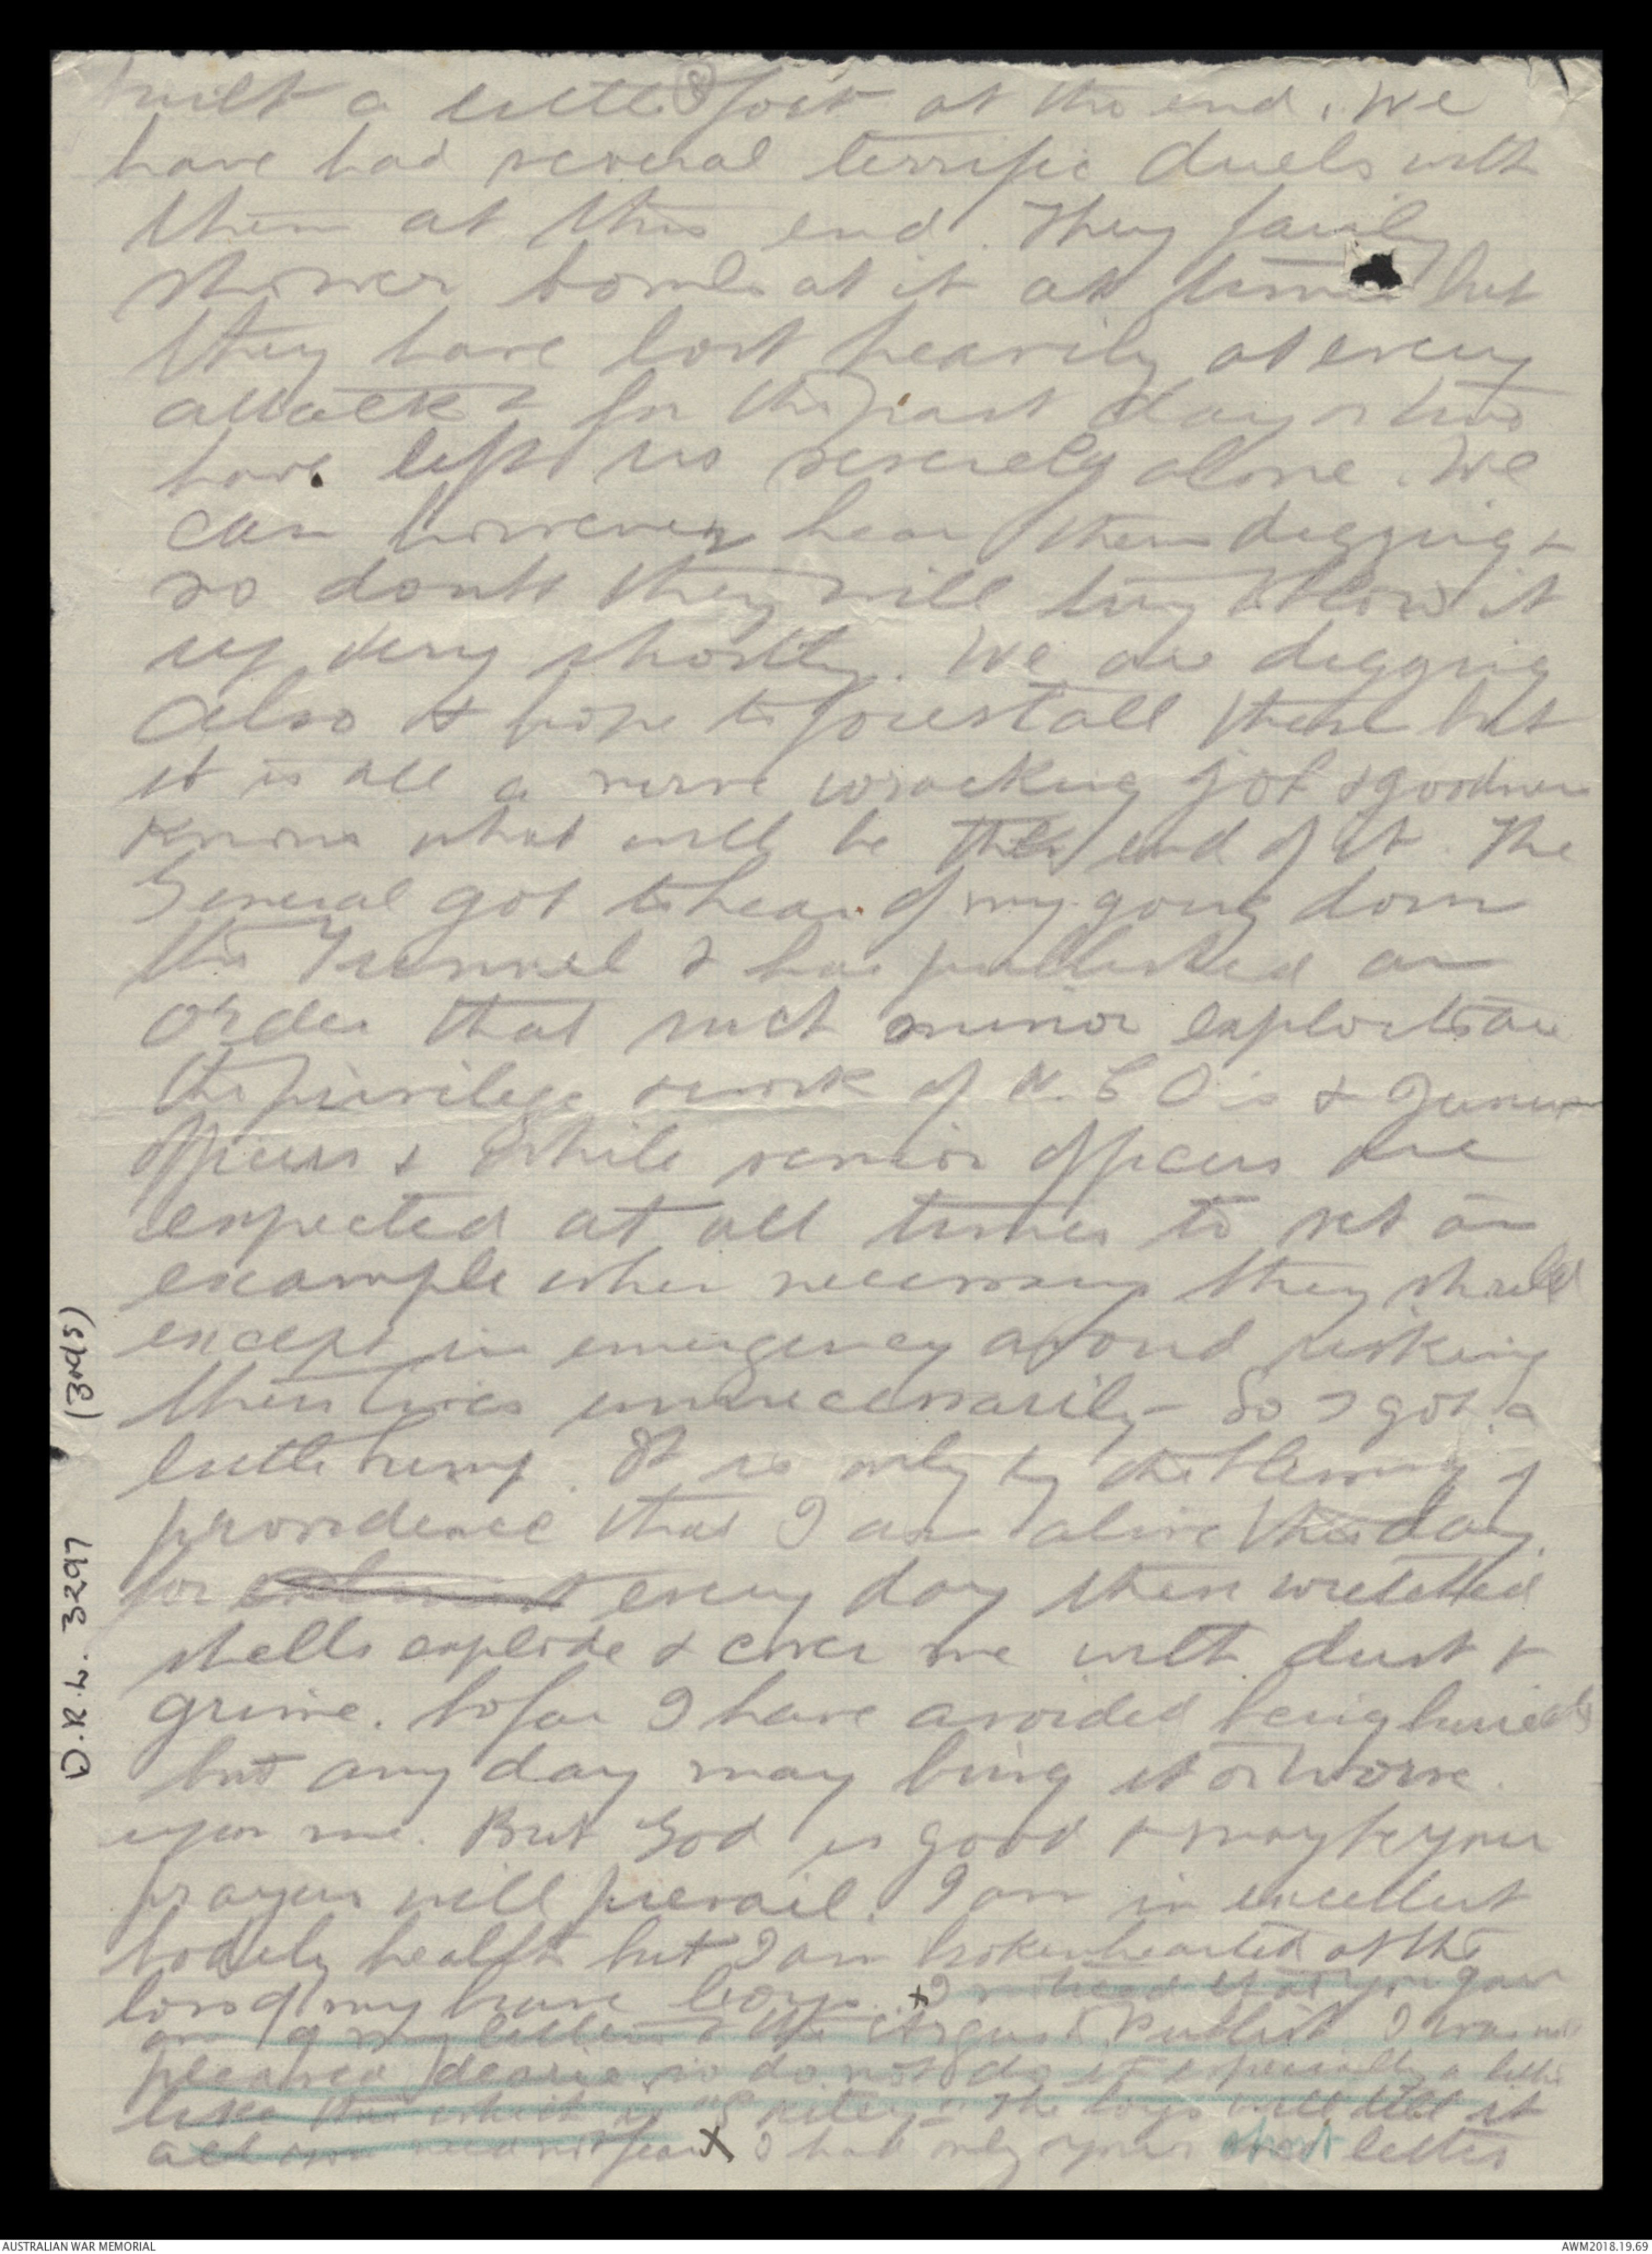 8
built a little fort at the end. We
have had several terrific duels with
them at this end. They fairly
shower bombs at it at times but
they have lost heavily at every
attack & for the past day or two
have left us severely alone. We
can however hear them digging &
so doubt they will try to blow it
up very shortly. We are digging
also & hope to forestall them but
it is all a nerve wracking job & goodness
knows what will be the end of it. The
General got to hear of my going down
the Tunnel & has published an
order that such minor exploits are
the privilege & work of N.C.O's & Junior
Officers & while senior officers are
expected at all times to set an
example when necessary they should
except in emergency avoid risking
their lives unnecessarily - So I got a
little bump. It is only by the blessing of
providence that I am alive this day
for every day these wretched
shells explode & cover me with dust &
grime. So far I have avoided being buried
but any day may bring it or worse
upon me. But God is good & maybe your
prayers will prevail. I am in excellent
bodily health but I am brokenhearted at the
loss of my brave boys. x I read that you gave
one of my letters to the Argus to Publish I was not
pleased dearie so do not do it especially a letter
like this which is The boys will tell it
all you need not fear x I had only your short letter
(3rd/s)
O.R.L. 3297
AUSTRALIAN WAR MEMORIAL
AWM2018.19.69